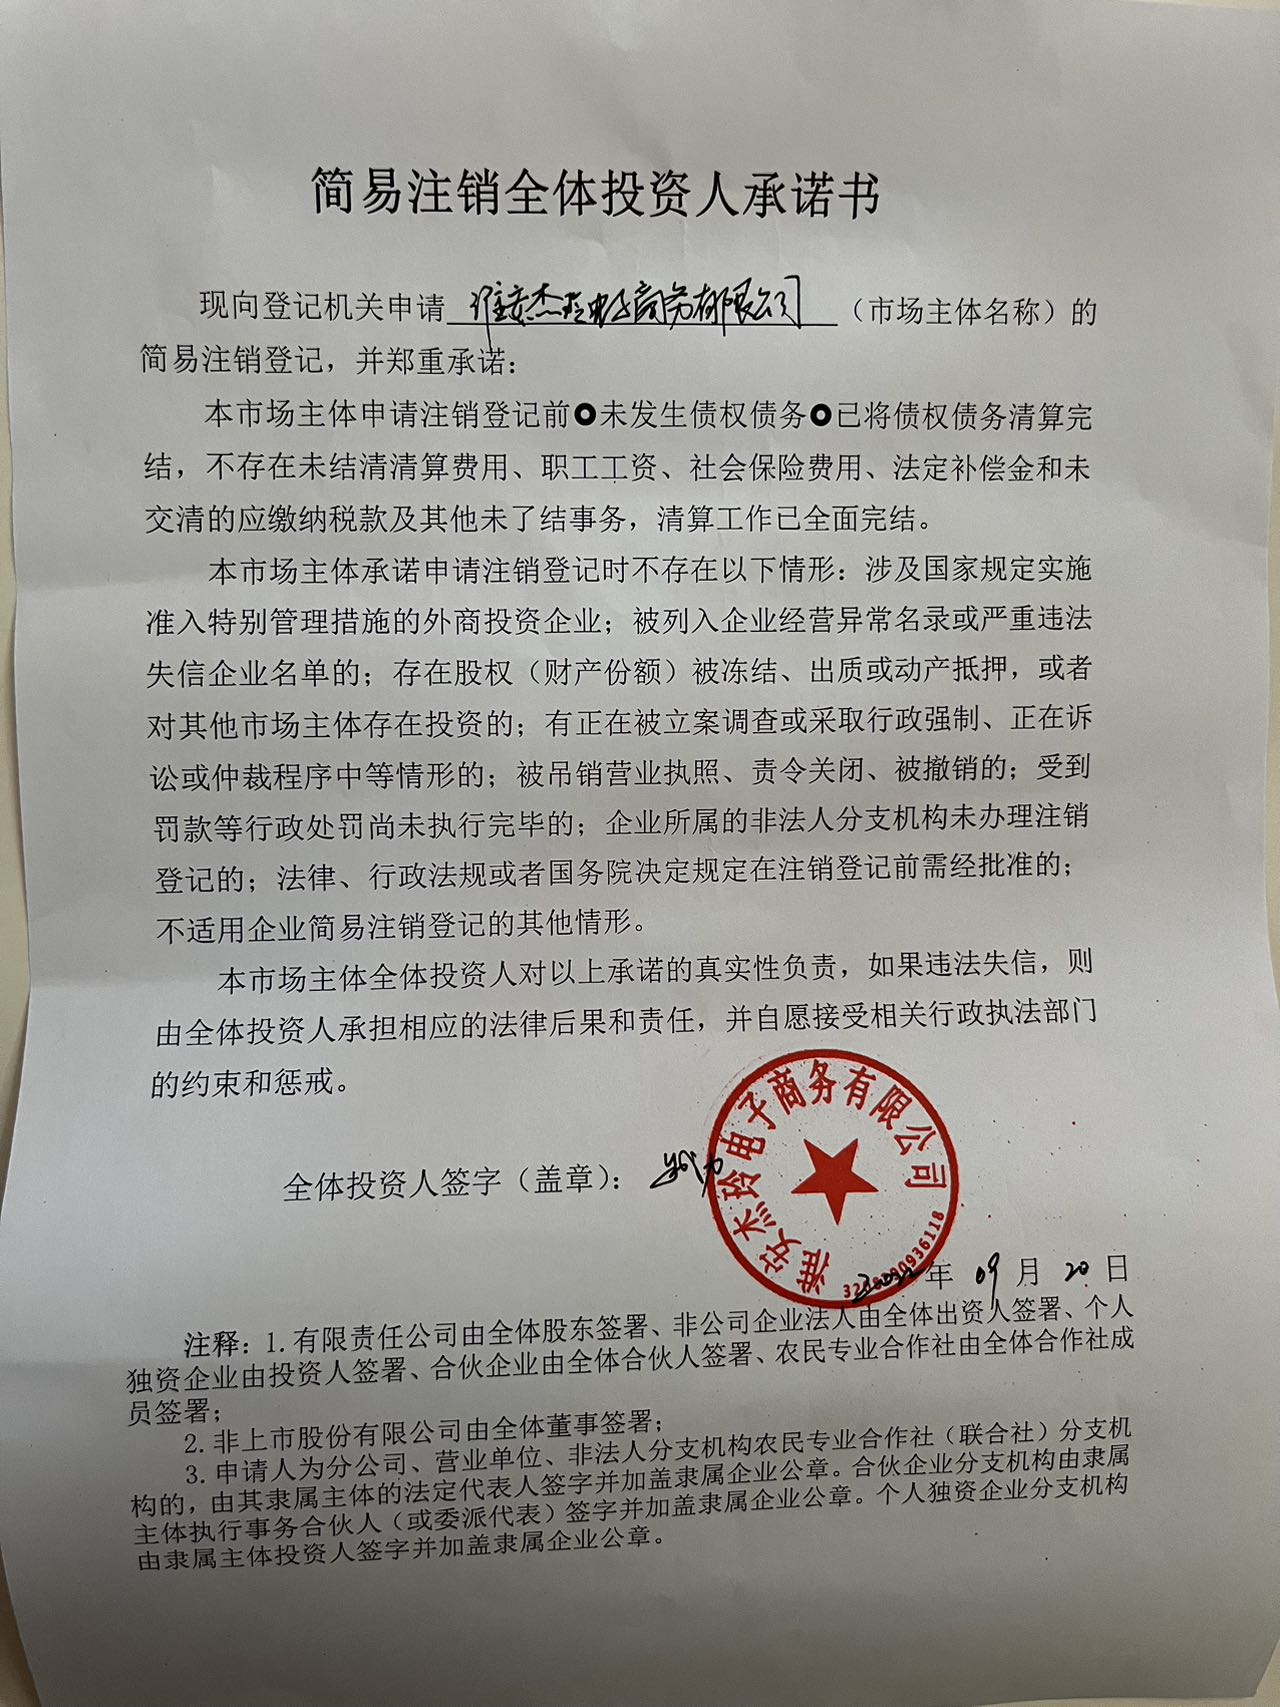 简易注销全体投资人承诺书
现向登记机关申请 淮安杰玲电子商务有限公司 （市场主体名称）的
简易注销登记，并郑重承诺：
本市场主体申请注销登记前未发生债权债务已将债权债务清算完
结，不存在未结清清算费用、职工工资、社会保险费用、法定补偿金和未
交清的应缴纳税款及其他未了结事务，清算工作已全面完结。
本市场主体承诺申请注销登记时不存在以下情形：涉及国家规定实施
准入特别管理措施的外商投资企业；被列入企业经营异常名录或严重违法
失信企业名单的；存在股权（财产份额）被冻结、出质或动产抵押，或者
对其他市场主体存在投资的；有正在被立案调查或采取行政强制、正在诉
讼或仲裁程序中等情形的；被吊销营业执照、责令关闭、被撤销的；受到
罚款等行政处罚尚未执行完毕的；企业所属的非法人分支机构未办理注销
登记的；法律、行政法规或者国务院决定规定在注销登记前需经批准的；
不适用企业简易注销登记的其他情形。
本市场主体全体投资人对以上承诺的真实性负责，如果违法失信，则
由全体投资人承担相应的法律后果和责任，并自愿接受相关行政执法部门
的约束和惩戒。
淮安杰玲电子商务有限公司
全体投资人签字（盖章）：
2022年 09月 20日
注释：1.有限责任公司由全体股东签署、非公司企业法人由全体出资人签署、个人
独资企业由投资人签署、合伙企业由全体合伙人签署、农民专业合作社由全体合作社成
员签署；
2.非上市股份有限公司由全体董事签署；
3.申请人为分公司、营业单位、非法人分支机构农民专业合作社（联合社）分支机
构的，由其隶属主体的法定代表人签字并加盖隶属企业公章。合伙企业分支机构由隶属
主体执行事务合伙人（或委派代表）签字并加盖隶属企业公章。个人独资企业分支机构
由隶属主体投资人签字并加盖隶属企业公章。